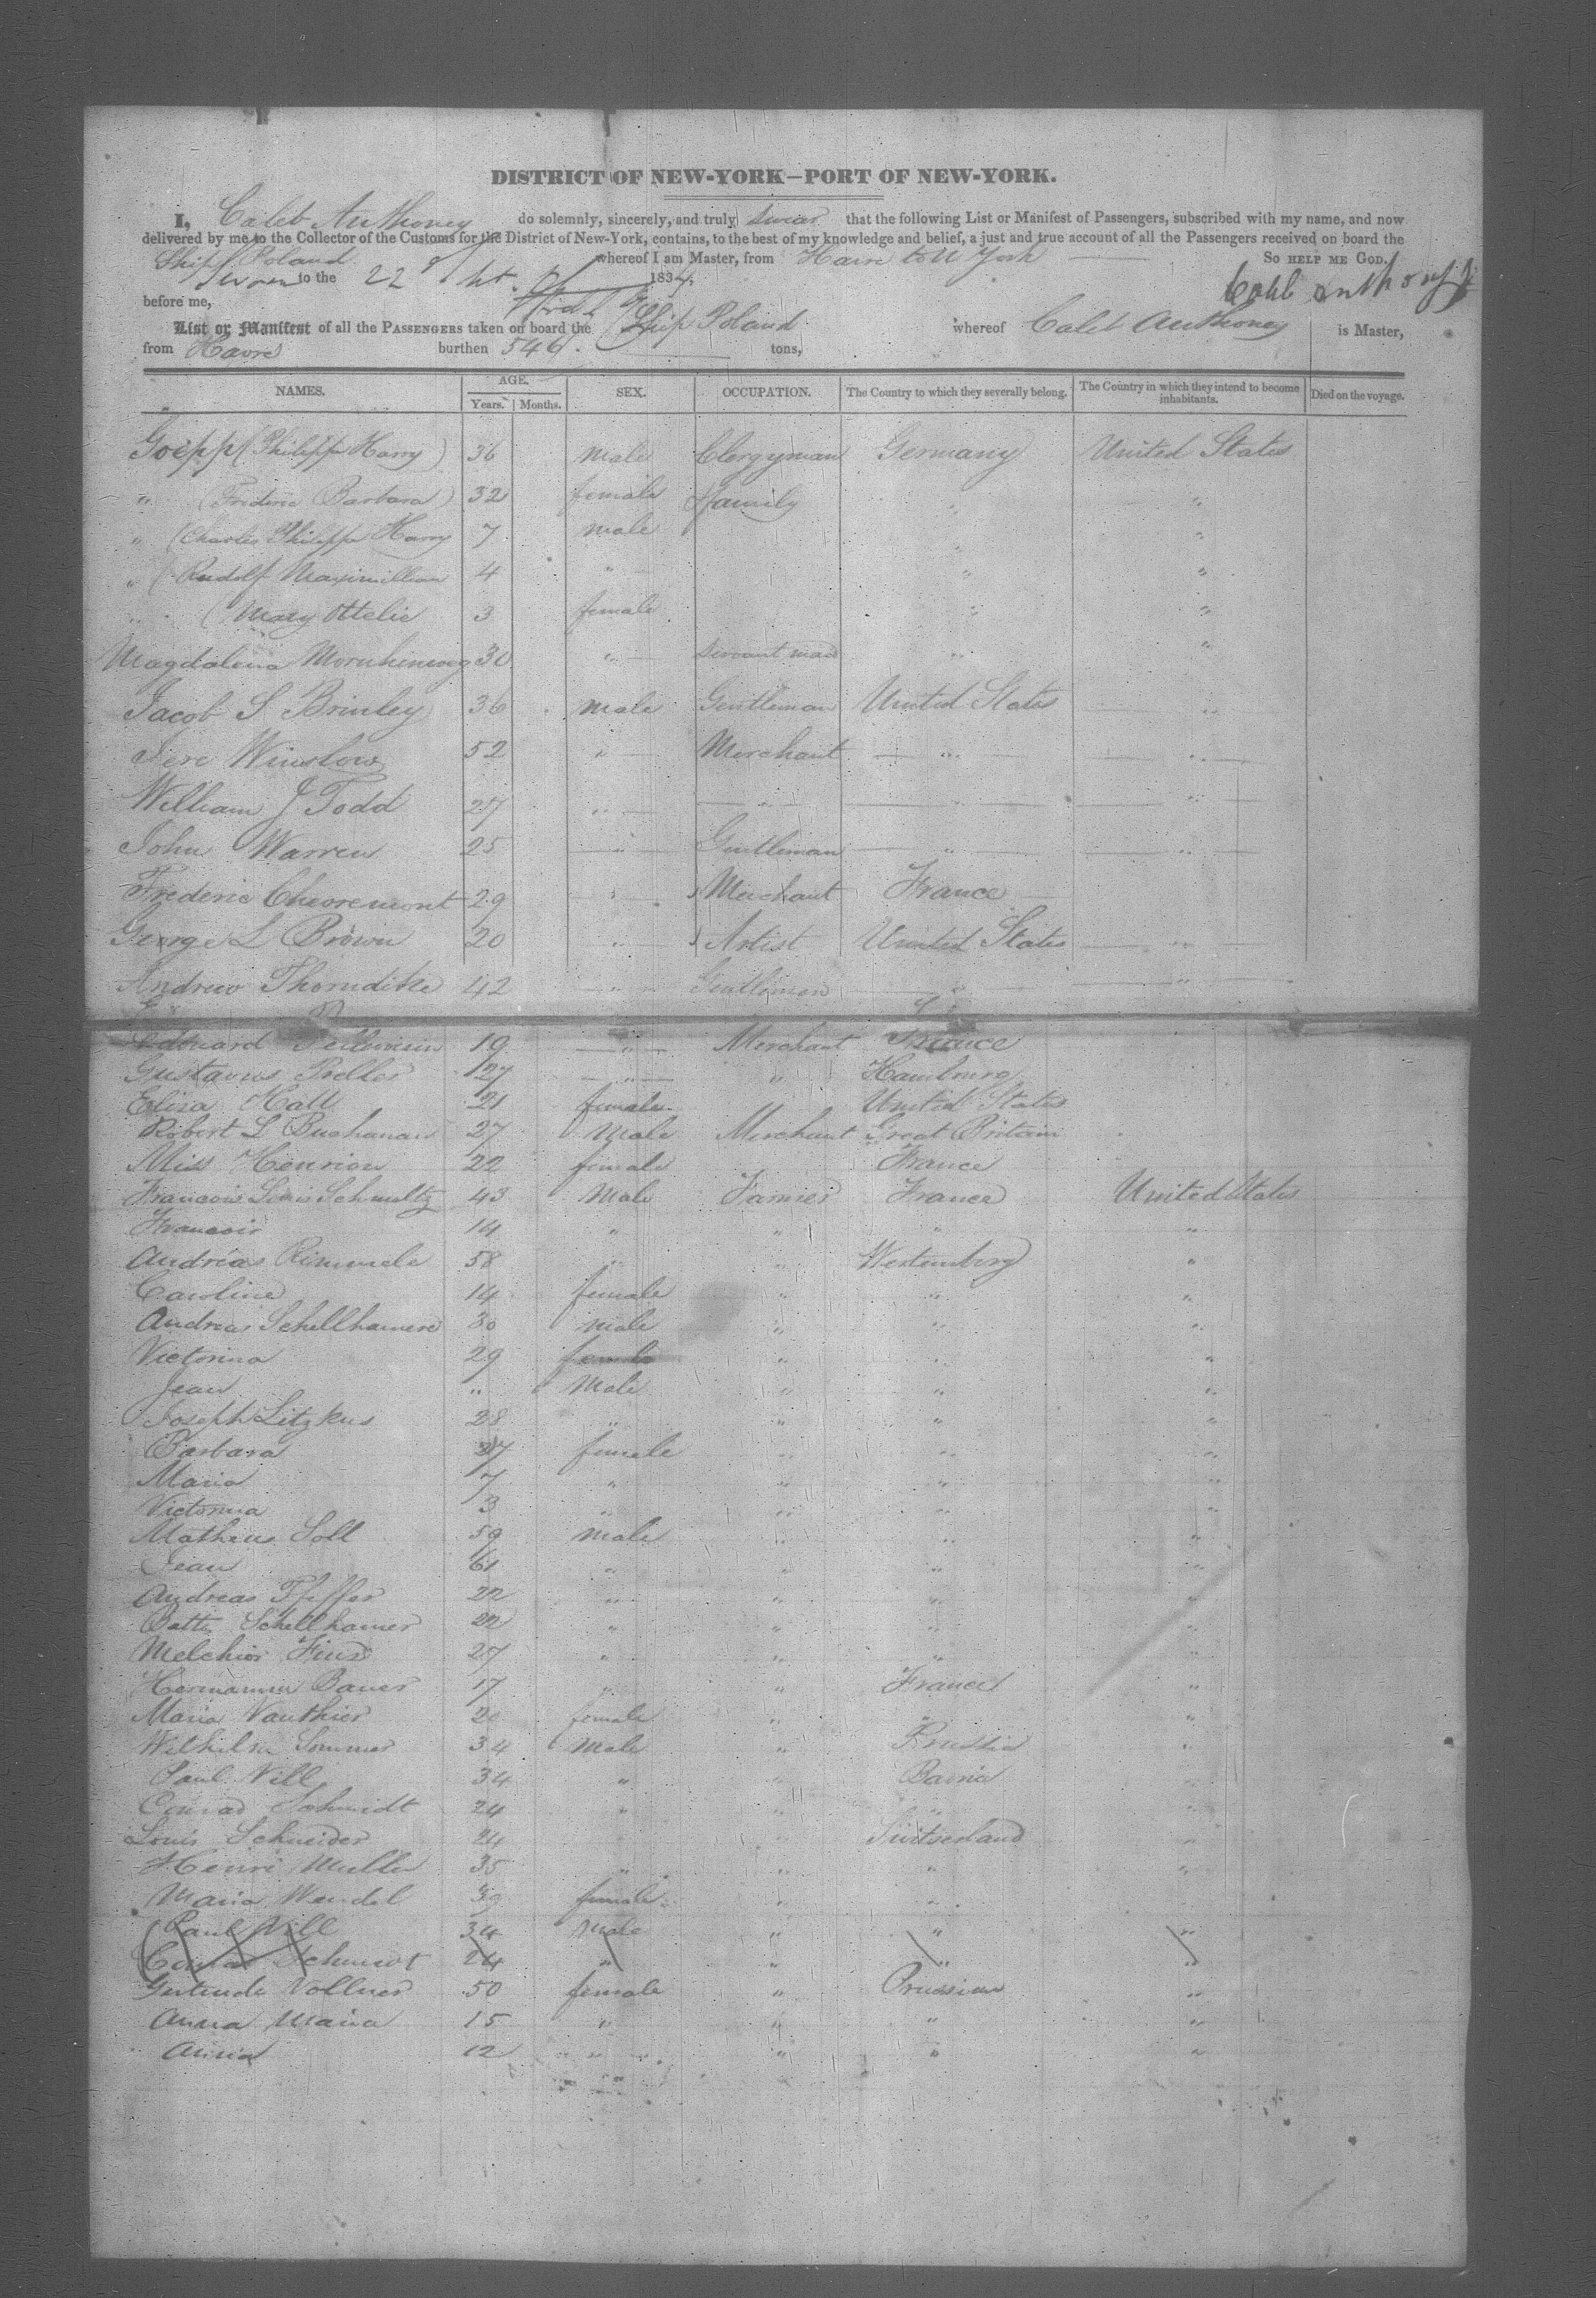 DISTRICT OF NEW-YORK—PORT OF NEW-YORK.
I, Caleb Anthoney do solemnly, sincerely, and truly swear that the following List or Manifest of Passengers, subscribed with my name, and now
delivered by me to the Collector of the Customs for the District of New-York, contains, to the best of my knowledge and belief, a just and true account of all the Passengers received on board the
Ship Poland whereof I am Master, from Havre to N York So HELP ME GOD.
Sworn to the 22 1834.
before me, Caleb Anthony Jr
List or Manifest of all the PASSENGERS taken on board the Ship Poland whereof Caleb Anthoney is Master,
from Havre burthen 546 tons,
NAMES. AGE. SEX. OCCUPATION. The Country to which they severally belong. The Country in which they intend to become inhabitants. Died on the voyage.
Years. Months.
Goëpp (Philipp Harry) 36 Male Clergyman Germany United States
" (Frideric Barbara) 32 female family " "
" (Charles Philipp Harry 7 male " "
" (Rudolf Maximillian 4 " " "
" (Mary Ottelie 3 female " "
Magdalena 30 " servant maid " "
Jacob S Brinley 36 Male Gentleman United States "
Jere Winslow 52 " Merchant " "
William J Todd 27 " " " "
John Warren 25 " Gentleman " "
Frederic Chevremont 29 " Merchant France
George L Brown 20 " Artist United States "
Andrew Thorndike 42 " Gentleman " "
Edouard 19 " Merchant France
Gustavus Preller 27 " " Hamburg
Eliza Hall 21 female United States
Robert L Buchanan 27 Male Merchant Great Britain
Miss Henrion 22 female France
Francois Louis Schmultz 43 Male Farmer France United States
Francois 14 " " " "
Andréas Rimmele 58 " " Wertemberg "
Caroline 14 female " " "
Andreas Schellhamere 30 male " " "
Victorina 29 female " " "
Jean " Male " " "
Joseph Litzkus 28 " " " "
Barbara 27 female " " "
Maria 7 " " " "
Victorina 3 " " " "
Matheus Soll 59 Male " " "
Jean 61 " " " "
Andreas Pfeffer 22 " " " "
Batte Schellhamer 22 " " " "
Melchior 27 " " " "
Hermann Bauer 17 " " France "
Maria Vauthier 20 female " " "
Wilhelm Sommer 34 Male " Prussia "
Paul Will 34 " " Bavria "
Conrad Schmidt 24 " " " "
Louis Schneider 24 " Switserland "
Henri Muller 35 " " " "
Maria Wendel 39 female " " "
Paul Will 34 Male " " "
Conrad Schmidt 24 " " " "
Gertrude Vollmer 50 female " Prussian "
Anna Maria 15 " " " "
Anna 12 " " " "